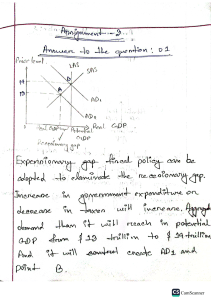 Assignment - 2
Answer to the question : 01
Price level
LAS
SAS
B
A
AD1
AD0
Real GDP
Potential
GDP
Recessionary gap
Expensionary gap fiscal policy can be
adopted to eleminate the recessionary gap.
Increase in government expenditure or
decrease in taxes will increase. Aggregate
demand then it will reach in potential
GDP from $ 13 trillion to $ 14 trillion
And it will create AD1 and
point B.
CamScanner